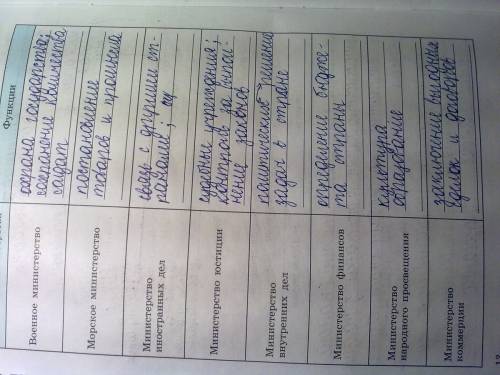 Функции
Военное министерство
охрана государства;
пополнение количества
солдат
Морское министерство
поставление
товаров и
Министерство
иностранных дел
связь с другими ст-
ранами;
Министерство юстиции
судебные учреждения;
контроль за выпол-
нение законов
Министерство
внутренних дел
политический решение
задач в стране
Министерство финансов
определение бюдже-
та страны
Министерство
народного просвещения
культура
образование
Министерство
коммерции
заключение выгодных
сделок и договоров